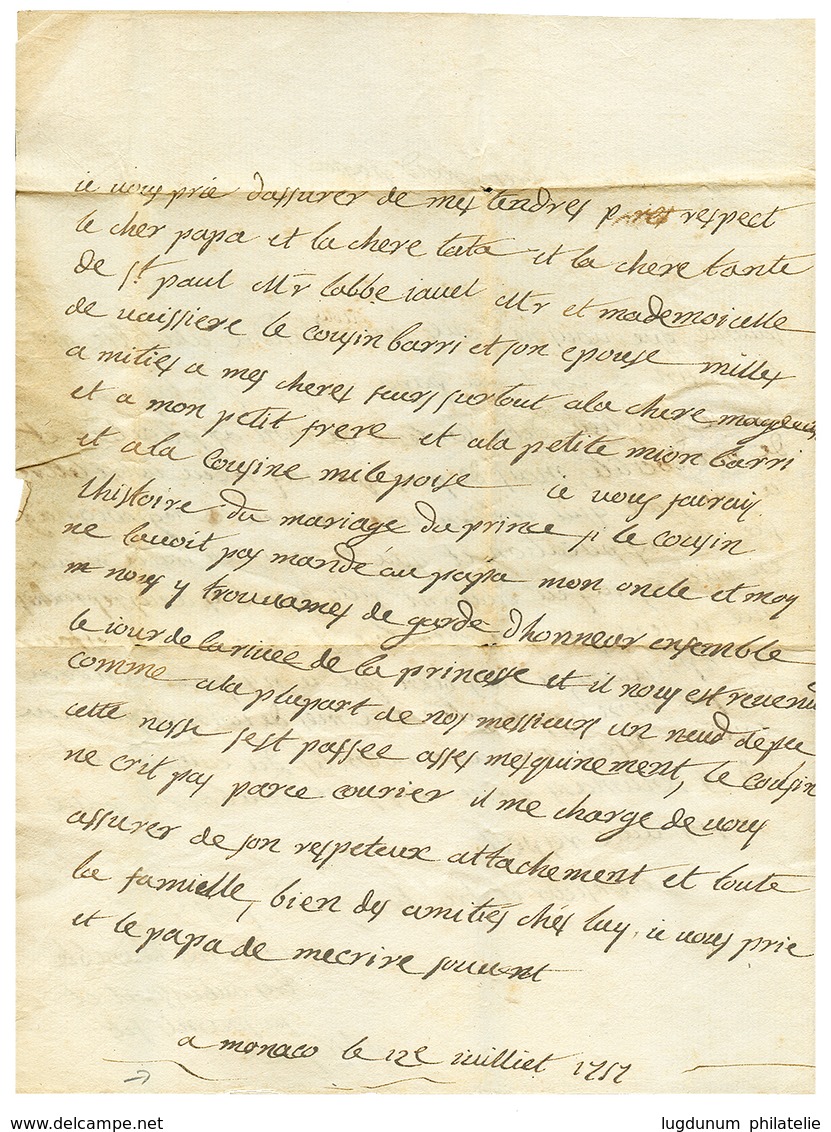 ie vous prie dassurer de mes tendres respect
le cher papa et la chere tata et la chere tante
de st paul Mr labbe iauel Mr et mademoiselle
de vaissiere le cousin barri et son epouse milles
amities a mes cheres seurs surtout ala chere
et a mon petit frere et ala petite mion barri
et ala cousine milepoise ie vous saurais
lhistoire du mariage du prince si le cousin
ne lauoit pas mandé au papa mon oncle et moy
nous y trouuames de garde dhonneur ensemble
le iour de lariuee de la princesse et il nous est reuenu
comme ala plupart de nos messieurs un neud depee
cette nosse sest passee asses mesquinement, le cousin
ne crit pas parce courier il me charge de vous
assurer de son respeteux attachement et toute
la famielle, bien des amitiés chés luy, ie vous prie
et le papa de mecrire souuent
a monaco le 12e iuilliet 1757
www.delcampe.net
lugdunum philatelie